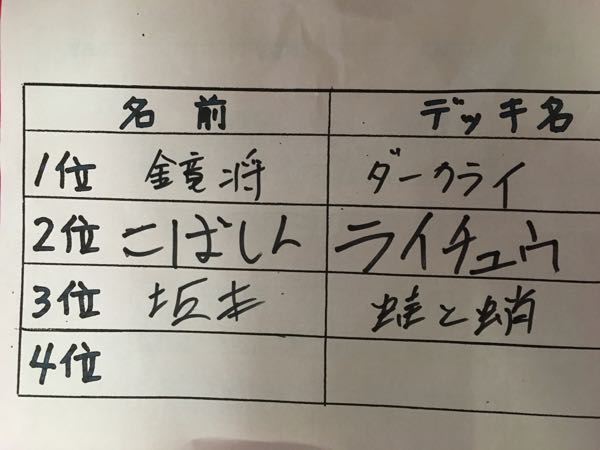 名前 デッキ名
1位 鏡将 ダークライ
2位 こばしん ライチュウ
3位 坂本 蛙と蛸
4位